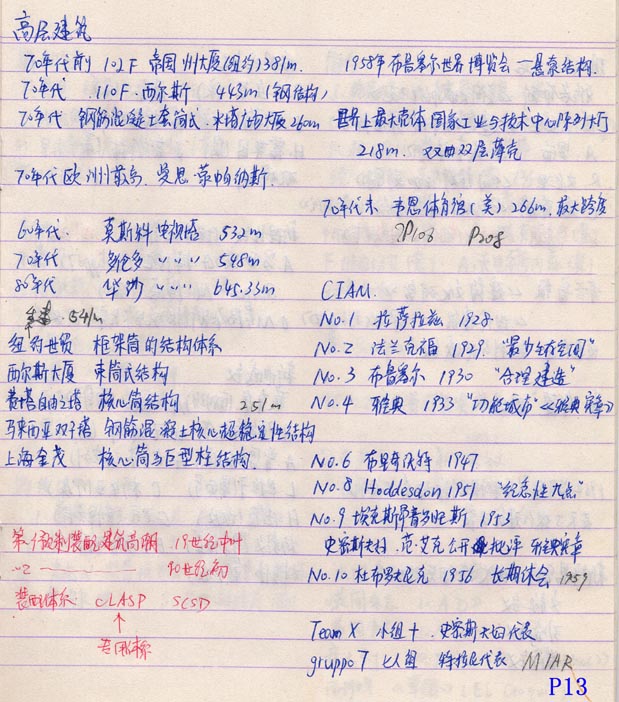 高层建筑
70年代前 102F 帝国州大厦(纽约)381m.
70年代 110F.西尔斯 443m(钢结构)
70年代 钢筋混凝土套筒式.水塔广场大厦260m
70年代欧州蒙帕.曼恩·蒙帕纳斯.
60年代. 莫斯科电视塔 532m
70年代 多伦多 〃〃〃 548m
80年代 华沙 〃〃〃 645.33m
541m
纽约世贸 框架筒的结构体系
西尔斯大厦 束筒式结构
费城自由之塔 核心筒结构 251m
马来西亚双子塔 钢筋混凝土核心超稳定性结构
上海金茂 核心筒与巨型柱结构.
第1个预制装配建筑高潮 19世纪中叶
〃2 —————— 20世纪初
装配体系 CLASP SCSD
↑
专用体系
1958年布鲁塞尔世界博览会—悬索结构.
世界上最大壳体 国家工业与技术中心陈列大厅
218m. 双曲双层薄壳
70年代末 韦恩体育馆(美)266m.最大跨度
?P106 P208
CIAM.
No.1 拉萨拉兹 1928
No.2 法兰克福 1929. "最少生存空间"
No.3 布鲁塞尔 1930 "合理建造"
No.4 雅典 1933 "功能城市"《雅典宪章》
No.6 布里奇沃特 1947
No.8 Hoddesdon 1951 "纪念性九点"
No.9 埃克斯昂普罗旺斯 1953
史密斯夫妇.范·艾克公开批评 雅典宪章
No.10 杜布罗夫尼克 1956 长期休会 1959
Team X 小组十.史密斯夫妇代表
gruppo 7 七人组 特拉尼代表 MIAR
P13